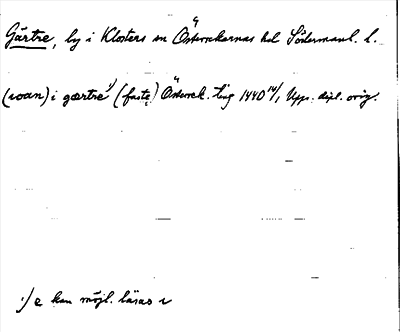 Gärtre, by i Klosters sn Österrekarnas hd Södermanl. l.
(roan) i gærtre¹⁾ (faste) Österrek. ting 1440 14/1 Upps. dipl. orig.
1) e kan möjl. läsas r